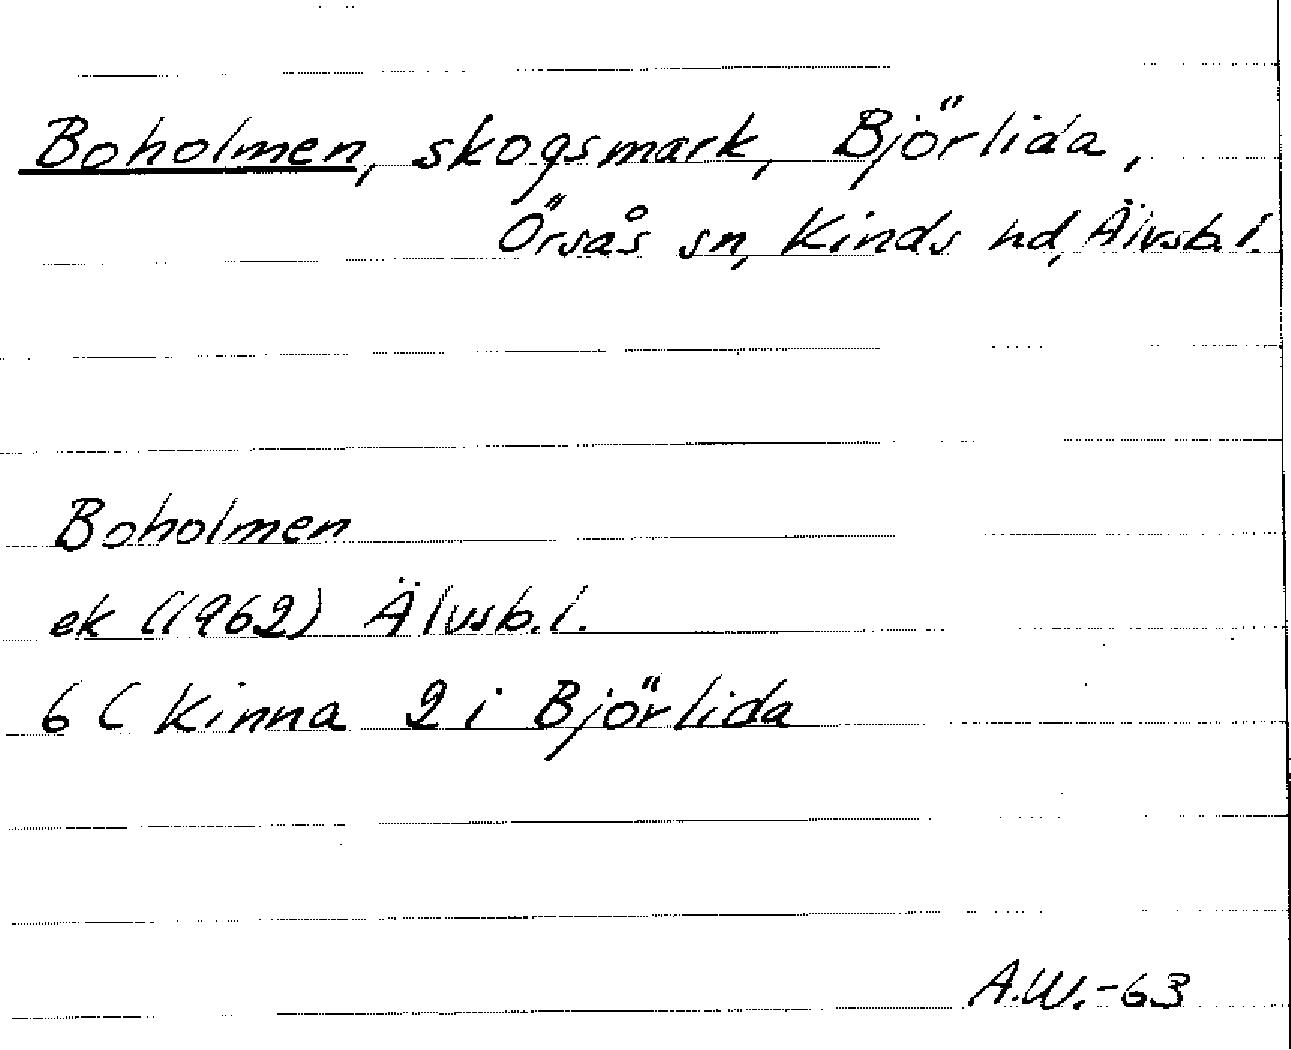 Boholmen, skogsmark, Björlida,
Örsås sn, Kinds hd, Älvsb.l.
Boholmen
ek (1962) Älvsb.l.
6 C Kinna 2 i Björlida
A.W.-63